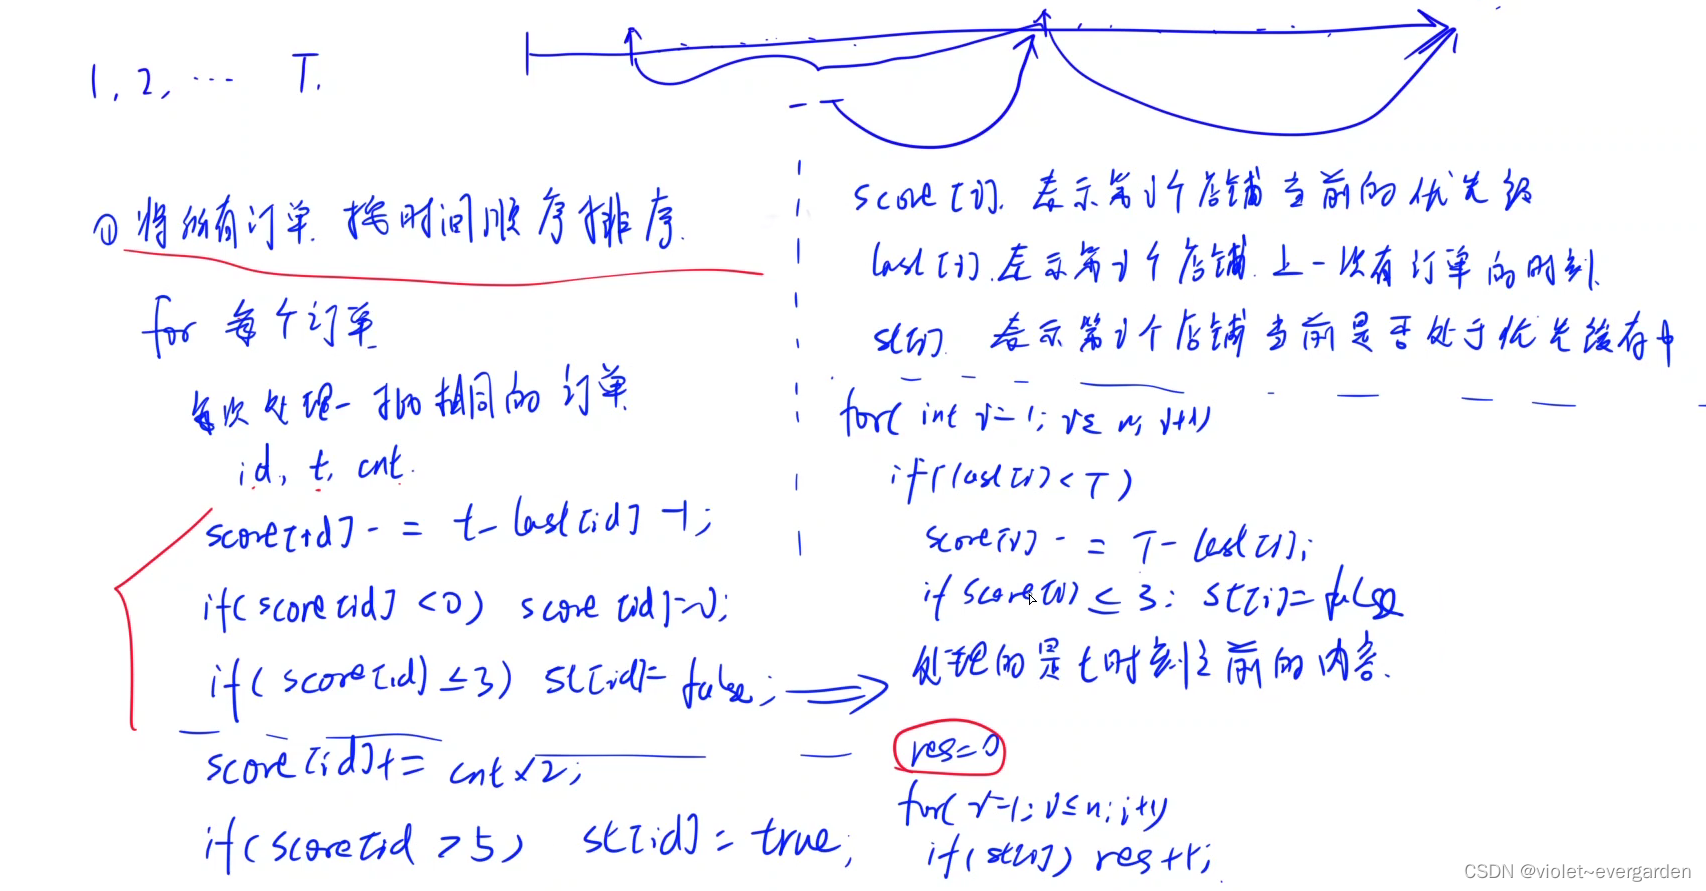 1, 2, ... T.
① 将所有订单 按时间顺序排序.
for 每个订单
每次处理一批相同的订单
id, t, cnt.
score[id] -= t - last[id] -1;
if(score[id] <0) score[id]=0;
if(score[id] ≤3) st[id]= false;
score[id]+= cnt×2;
if(score[id >5) st[id] = true;
score[i]. 表示第i个店铺当前的优先级
last[i]. 表示第i个店铺 上一次有订单的时刻.
st[i]. 表示第i个店铺当前是否处于优先缓存中
for( int i=1; i≤ n; i++)
if(last[i] < T)
score[i] -= T - last[i];
if score[i] ≤ 3: st[i]= false
处理的是t时刻之前的内容.
res=0
for( i=1; i≤n; i++)
if(st[i]) res++;
CSDN @violet~evergarden